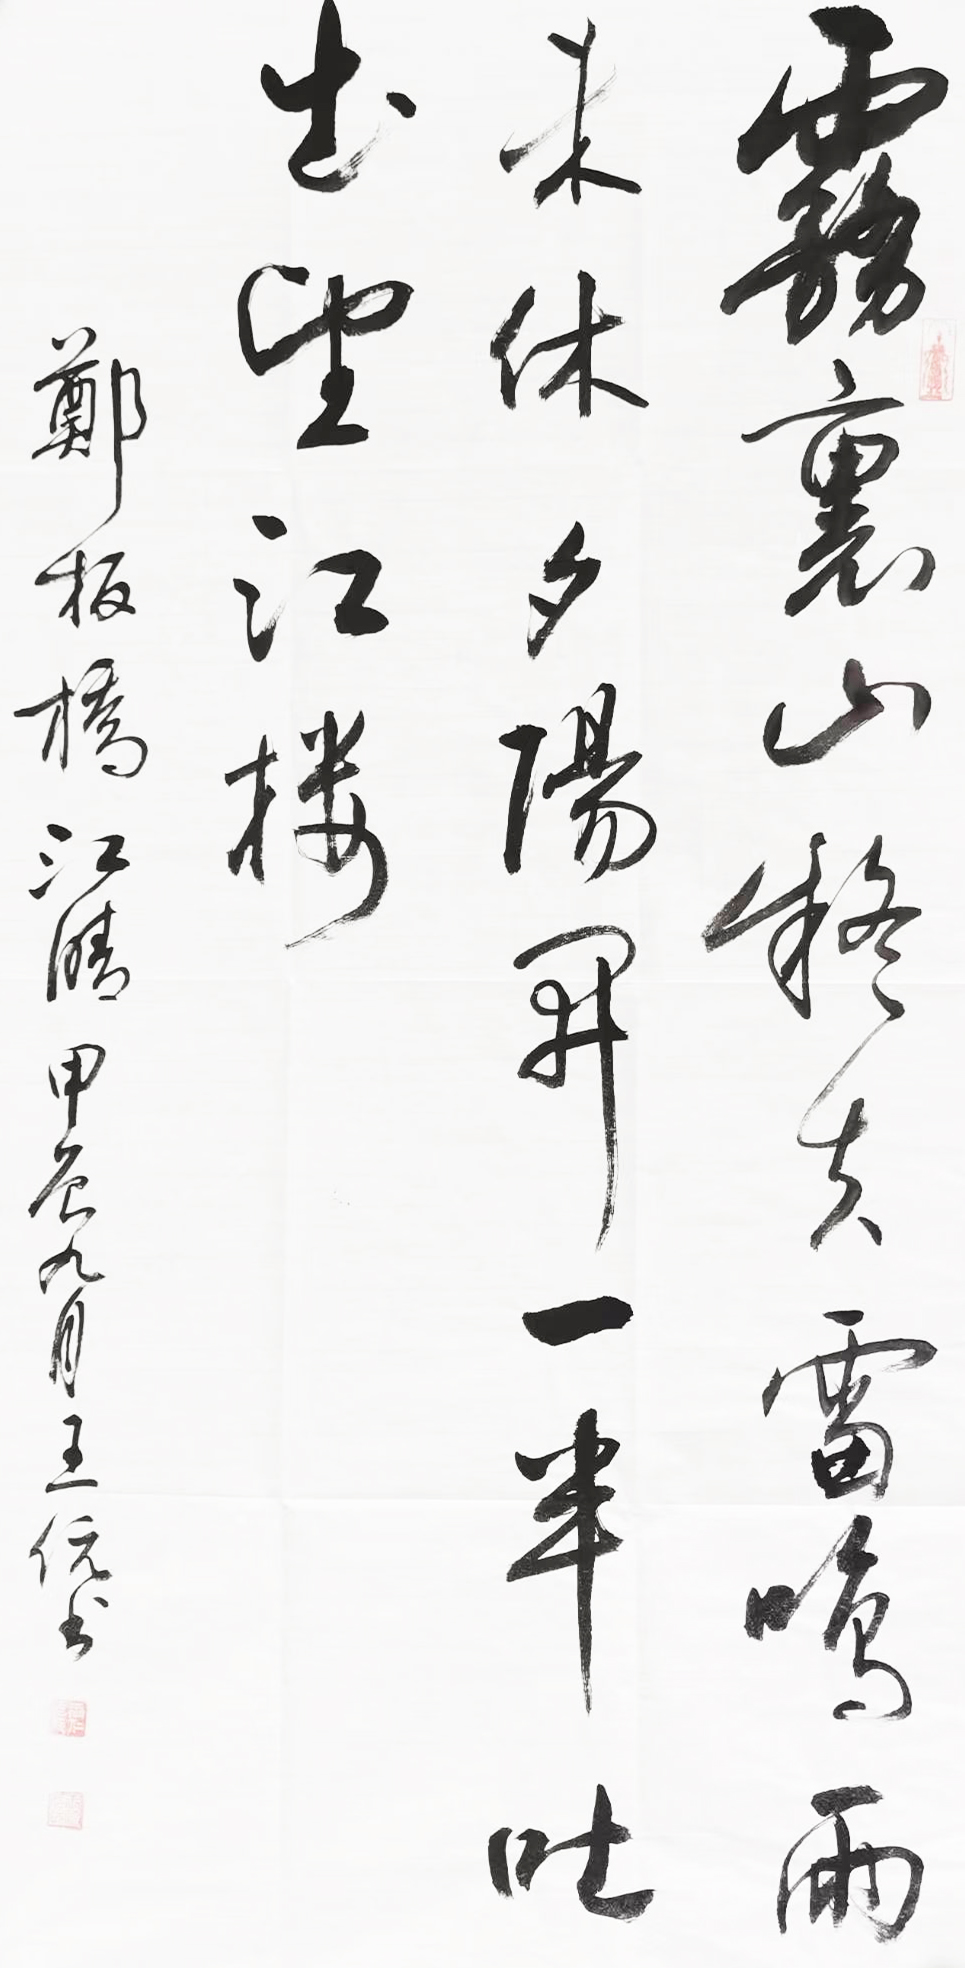 霧裏山疑失雷鳴雨
未休夕陽開一半吐
出望江楼
鄭板橋江晴甲辰九月王侃书